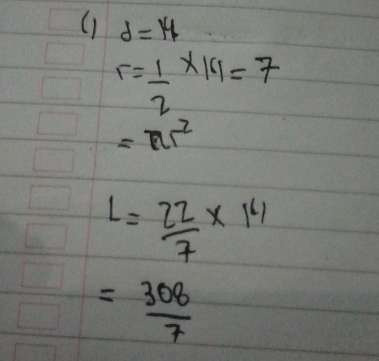 c) d = 14
r = 1/2 × 14 = 7
= πr²
L = 22/7 × 14
= 308/7